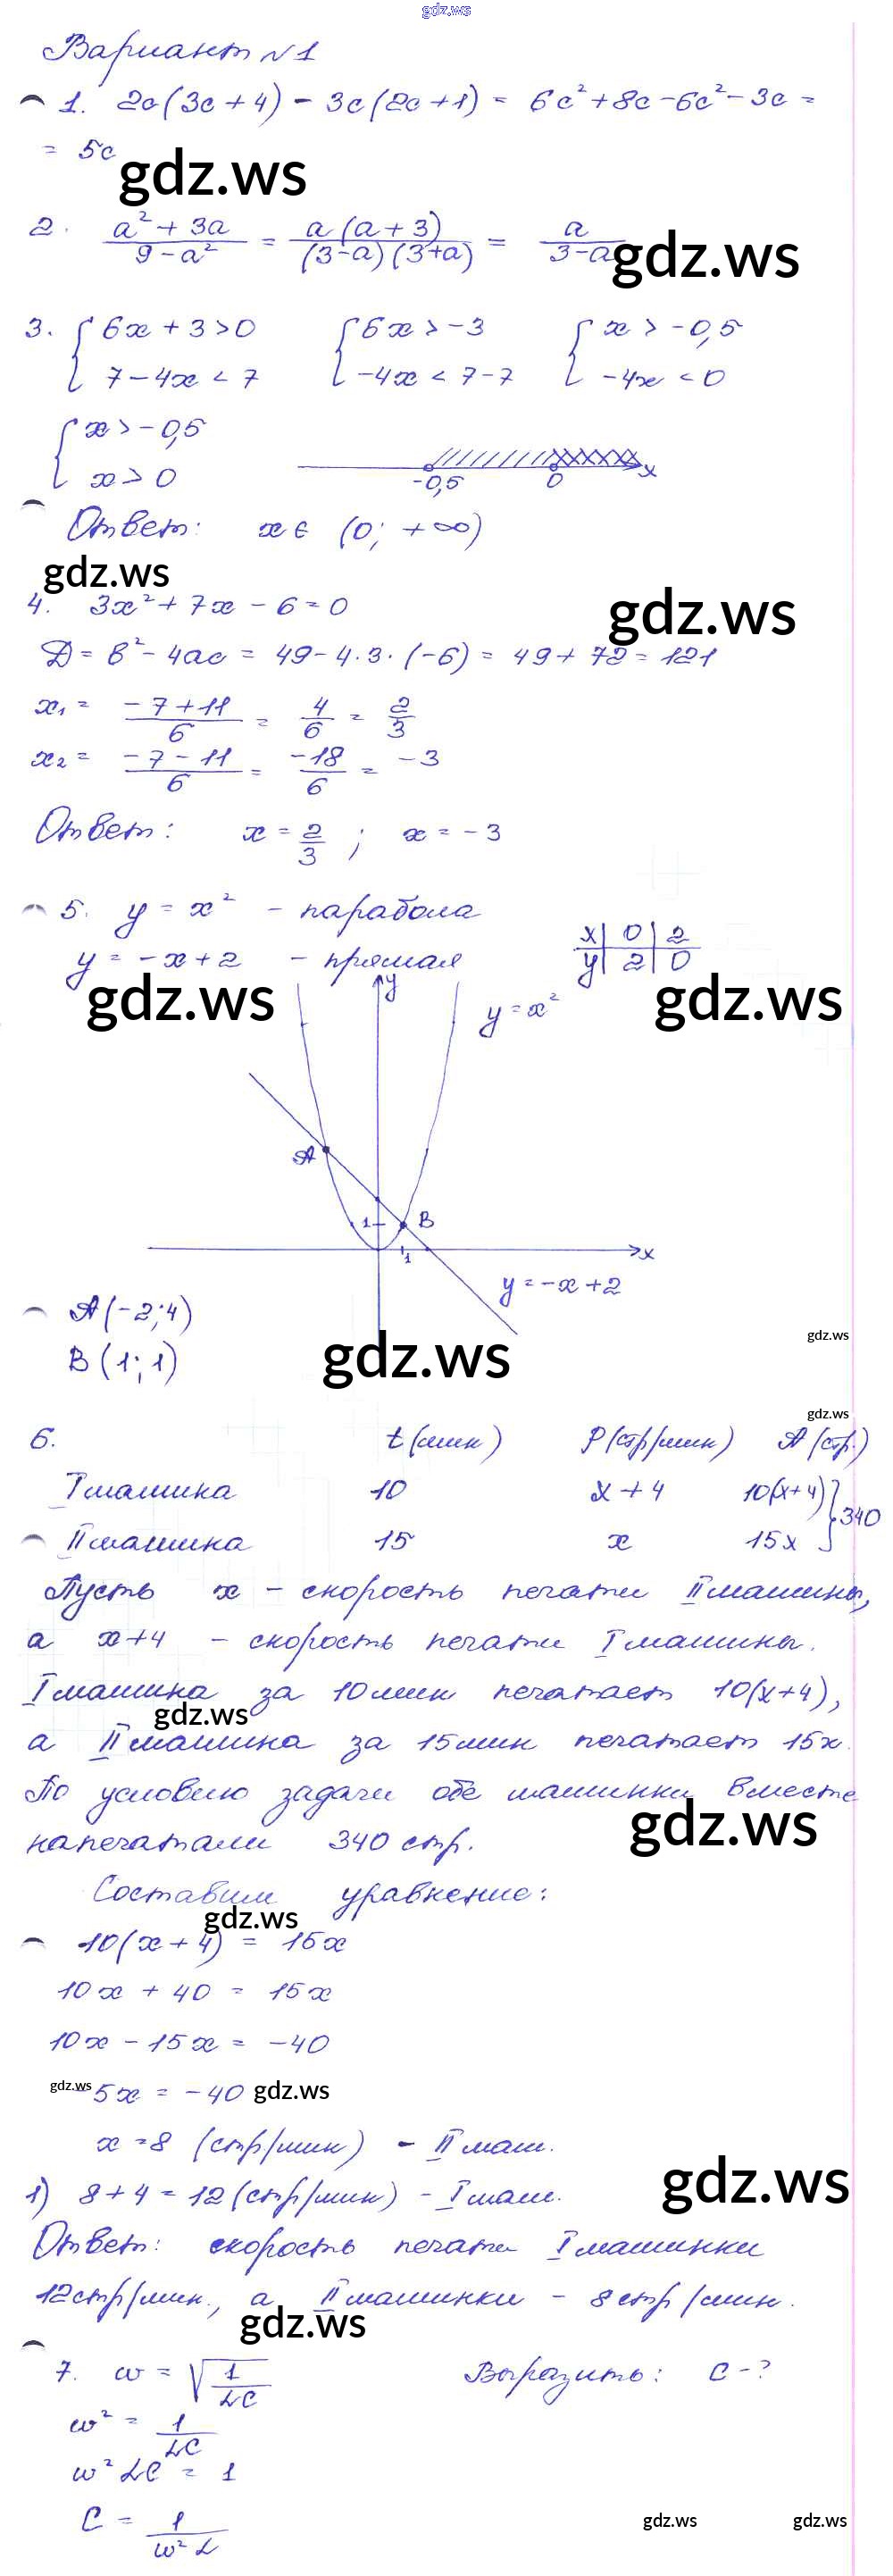 gdz.ws
Вариант №1
1. 2c(3c+4) - 3c(2c+1) = 6c²+8c-6c²-3c =
= 5c
gdz.ws
2. (a²+3a)/(9-a²) = (a(a+3))/((3-a)(3+a)) = a/(3-a)
gdz.ws
3. { 6x+3>0 { 6x>-3 { x>-0,5
7-4x<7 -4x<7-7 -4x<0
{ x>-0,5
x>0
-0,5 0 x
Ответ: x ∈ (0; +∞)
gdz.ws
gdz.ws
4. 3x²+7x-6=0
D = b²-4ac = 49-4·3·(-6) = 49+72=121
x₁ = (-7+11)/6 = 4/6 = 2/3
x₂ = (-7-11)/6 = -18/6 = -3
Ответ: x = 2/3 ; x = -3
5. y = x² - парабола
x | 0 | 2
y = -x+2 - прямая
y | 2 | 0
gdz.ws
gdz.ws
y
y = x²
A
1
B
1
x
y=-x+2
A(-2;4)
gdz.ws
B(1;1)
gdz.ws
gdz.ws
6. t(мин) P(стр/мин) A(стр.)
I машина 10 x+4 10(x+4) } 340
II машина 15 x 15x
Пусть x - скорость печати II машины,
а x+4 - скорость печати I машины.
I машина за 10 мин печатает 10(x+4),
gdz.ws
а II машина за 15 мин печатает 15x.
По условию задачи обе машинки вместе
gdz.ws
напечатали 340 стр.
Составим уравнение:
gdz.ws
10(x+4) = 15x
10x + 40 = 15x
10x - 15x = -40
gdz.ws
-5x = -40
gdz.ws
x=8 (стр/мин) - II маш.
gdz.ws
1) 8+4=12(стр/мин) - I маш.
Ответ: скорость печати I машинки
12стр/мин., а II машинки - 8стр/мин.
gdz.ws
7. ω = √(1/LC) Выразить: C-?
ω² = 1/LC
ω²LC = 1
C = 1/(ω²L)
gdz.ws
gdz.ws